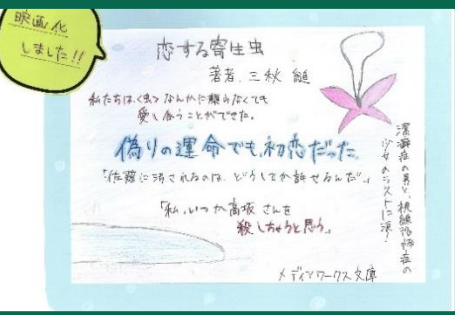 映画化
しました!!
恋する寄生虫
著者 三秋 縋
私たちは、<虫>なんかに頼らなくても
愛し合うことができた。
偽りの運命でも、初恋だった
「佐薙に汚されるのは、どうしてか許せるんだ」
「私、いつか高坂さんを
殺しちゃうと思う。」
潔癖症の男と、視線恐怖症の
少女のラストに涙!
メディアワークス文庫